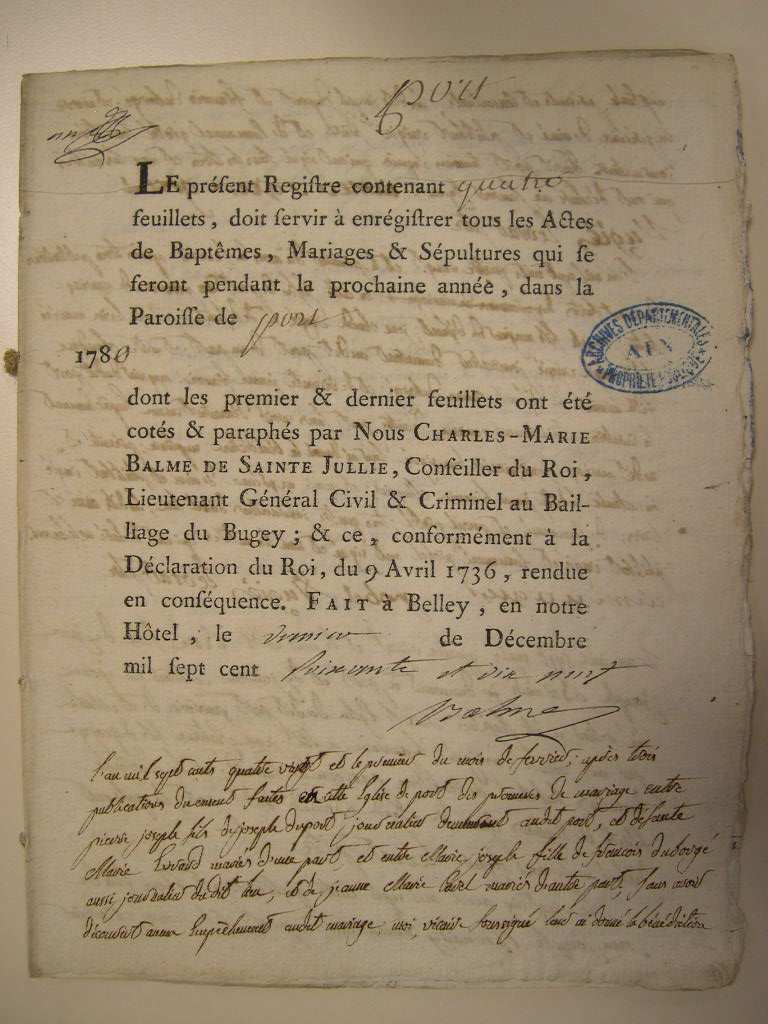 Port
LE préſent Regiſtre contenant quatre
feuillets, doit ſervir à enrégiſtrer tous les Actes
de Baptêmes, Mariages & Sépultures qui ſe
feront pendant la prochaine année, dans la
Paroiſſe de port
1780
ARCHIVES DÉPARTEMENTALES
AIN
PROPRIÉTÉ PUBLIQUE
dont les premier & dernier feuillets ont été
cotés & paraphés par Nous CHARLES-MARIE
BALME DE SAINTE JULLIE, Conſeiller du Roi,
Lieutenant Général Civil & Criminel au Bail-
liage du Bugey; & ce, conformément à la
Déclaration du Roi, du 9 Avril 1736, rendue
en conſéquence. FAIT à Belley, en notre
Hôtel, le de Décembre
mil ſept cent ſoixante et dix neuf
Balme
l'an mil sept cents quatre vingt et le premier du mois de fevrier, après trois
publications duement faites en cette Eglise de port des promesses de mariage entre
pierre joseph fils de joseph duport journalier demeurant audit port, et défunte
Marie mariés d'une part et entre Marie joseph fille de françois
aussi journalier dudit lieu, et de jeanne Marie mariés d'autre part, sans avoir
découvert aucun Empêchement audit mariage, moi, vicaire soussigné leur ai donné la bénédiction